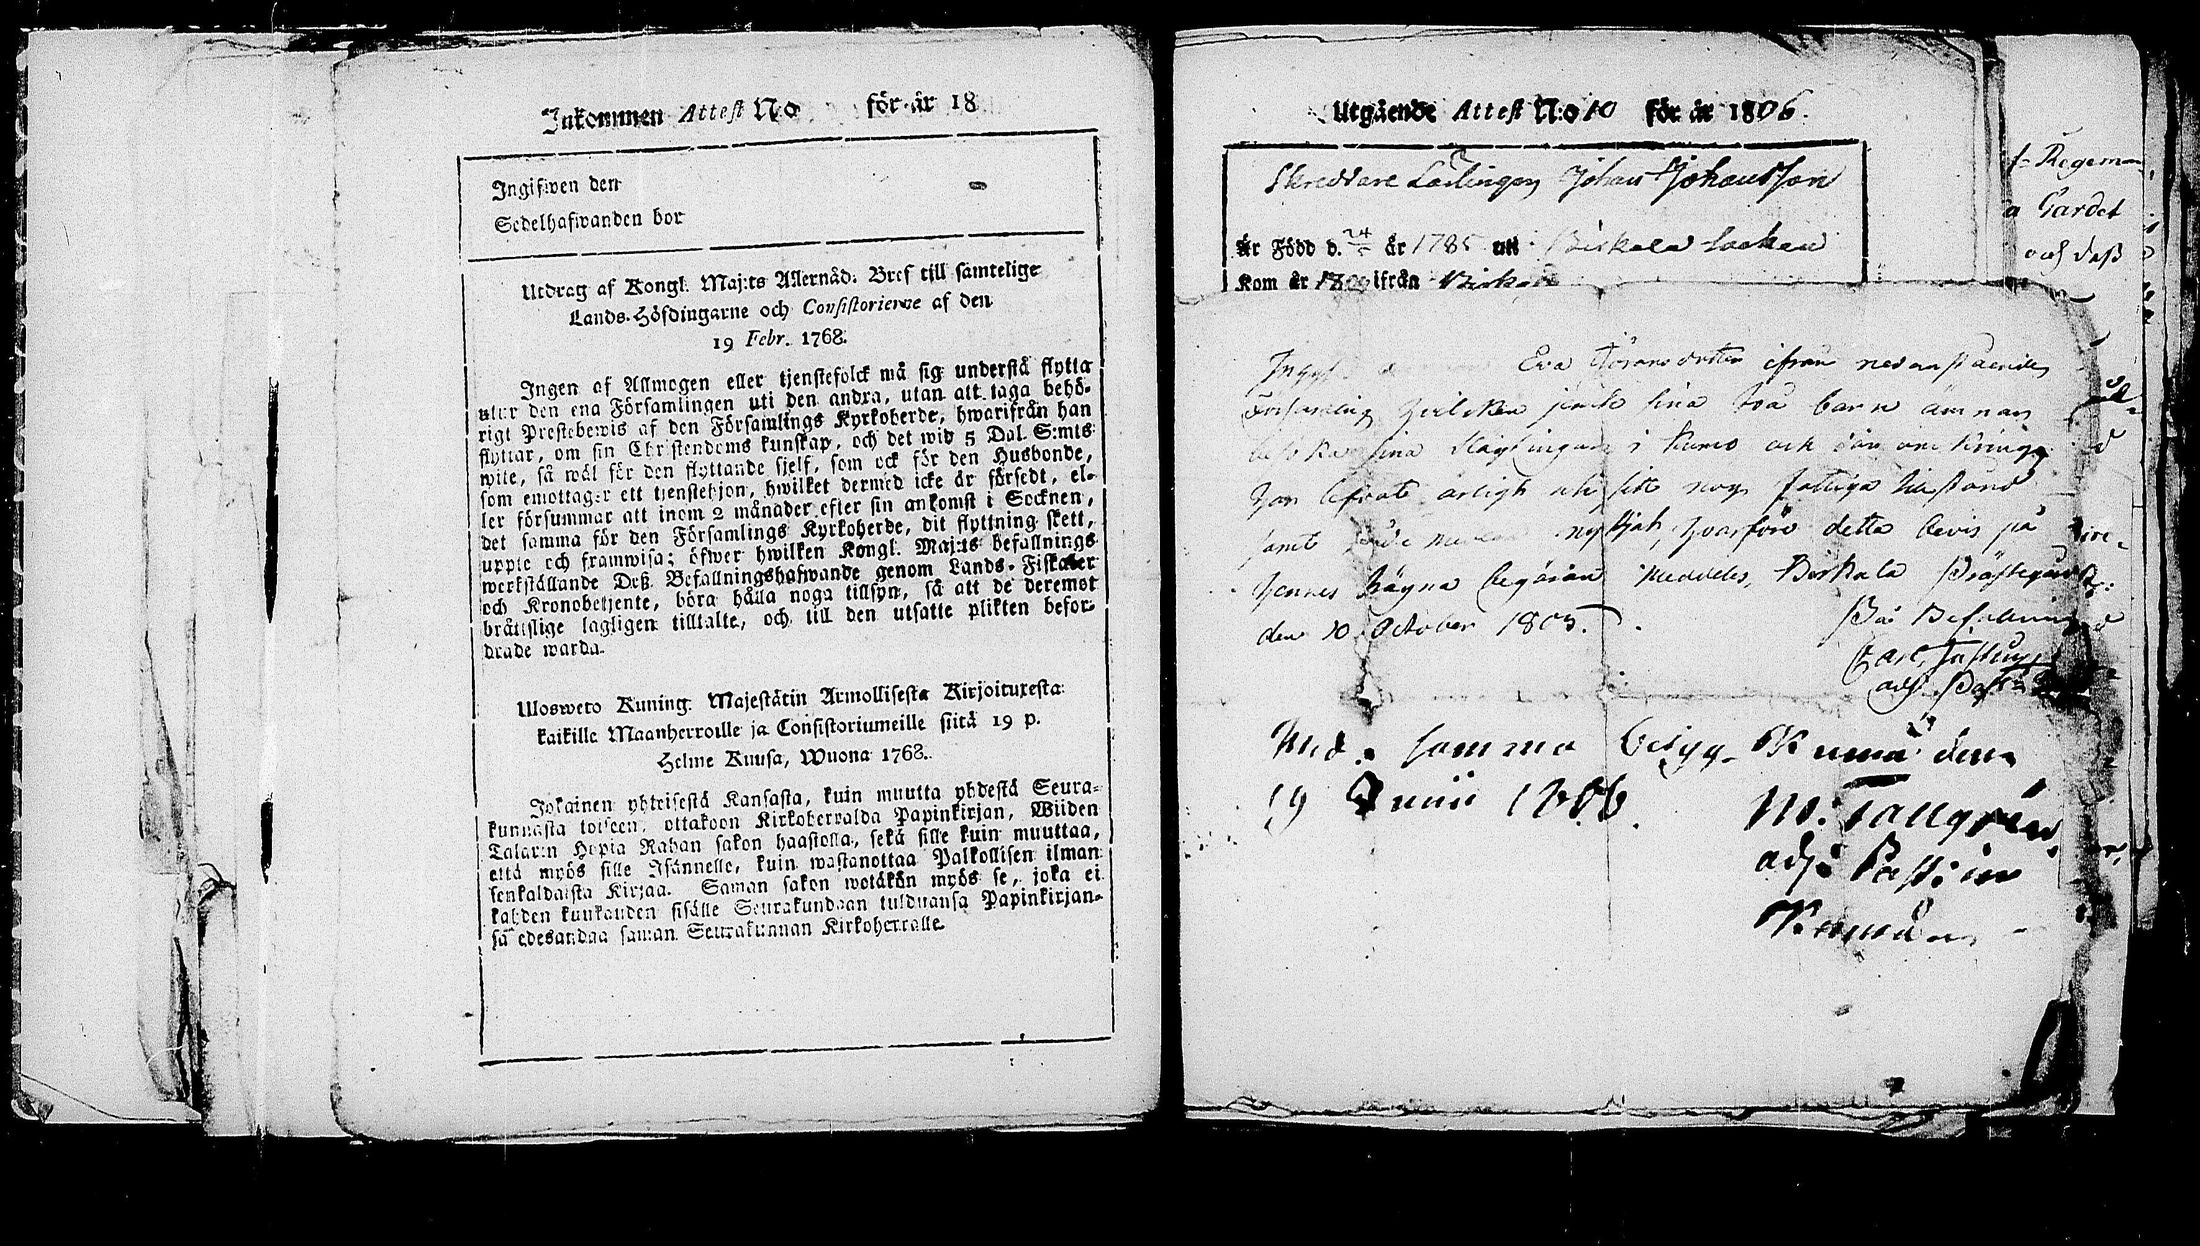 Inkommen Attest No för år 18
Ingifwen den
Sedelhafwanden bor
Utdrag af Kongl. Maj:ts Allernåd. Bref till samtelige
Lands-Höfdingarne och Consistorierne af den
19 Febr. 1768.
Ingen af Allmogen eller tjenstefolck må sig understå flytta
utur den ena Församlingen uti den andra, utan att taga behö-
rigt Prestebewis af den Församlings Kyrkoherde, hwarifrån han
flyttar, om sin Christendoms kunskap, och det wid 5 Dal. S:mts
wite, så wäl för den flyttande sjelf, som ock för den Husbonde,
som emottager ett tjenstehjon, hwilket dermed icke är försedt, el-
ler försummar att inom 2 månader efter sin ankomst i Socknen,
det samma för den Församlings Kyrkoherde, dit flyttning skett,
uppte och framwisa; öfwer hwilken Kongl. Maj:ts befallnings
werkställande Deß Befallningshafwande genom Lands-Fiskaler
och Kronobetjente, böra hålla noga tillsyn, så att de deremot
bråttslige lagligen tilltalte, och till den utsatte plikten befor-
drade warda.
Ulosweto Kuning. Majestätin Armollisesta Kirjoituxesta
kaikille Maanherroille ja Consistoriumeille siitä 19 p.
Helme Kuusa, Wuona 1768.
Jokainen yhteisestä Kansasta, kuin muutta yhdestä Seura-
kunnasta toiseen, ottakoon Kirkoherralda Papinkirjan, Wiiden
Talarin Hopia Rahan sakon haastolla, sekä sille kuin muuttaa,
että myös sille Isännelle, kuin wastanottaa Palkollisen ilman
senkaldaista Kirjaa. Saman sakon wetäkön myös se, joka ei
kahden kuukauden sisälle Seurakundaan tulduansa Papinkirjan-
sa edesandaa saman Seurakunnan Kirkoherralle.
Utgående Attest N:o 10 för år 1806.
Skreddare Lärlingen Johan Johansson
Är Född d. 24 år 1785 uti Birkala Socken
Kom år ifrån
Eva Göransdotter ifrån nedanstående
Församling hvilken jemte sina två barn ämnar
besöka sina Släktingar i Kumo och där omkring
har lefvat ärligt och sitt fattiga tillstånd
samt detta bevis på
hennes egna begäran meddeles, Birkala Prästegård
den 10 October 1805.
På Befallning
Carl
adj. Past.
Med samma betyg. Kumå den
19 Junii 1806.
M: Tallgrén
adj: Past: in
Kumå
f: Regemen
a Gardet
och daß